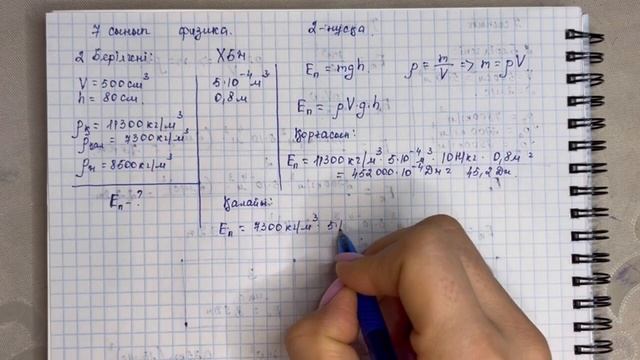 7 сынып физика. 2-нұсқа
2 Берілгені:
V = 500 см³
h = 80 см
ρк = 11300 кг/м³
ρқал = 7300 кг/м³
ρм = 8500 кг/м³
Eп - ?
ХБЖ
5·10⁻⁴ м³
0,8 м
Eп = mgh. ρ = m/V => m = ρV
Eп = ρV·g·h.
Қорғасын:
Eп = 11300 кг/м³ · 5·10⁻⁴ м³ · 10 Н/кг · 0,8 м =
= 452000·10⁻⁴ Дж = 45,2 Дж
Қалайы:
Eп = 7300 кг/м³ · 5·